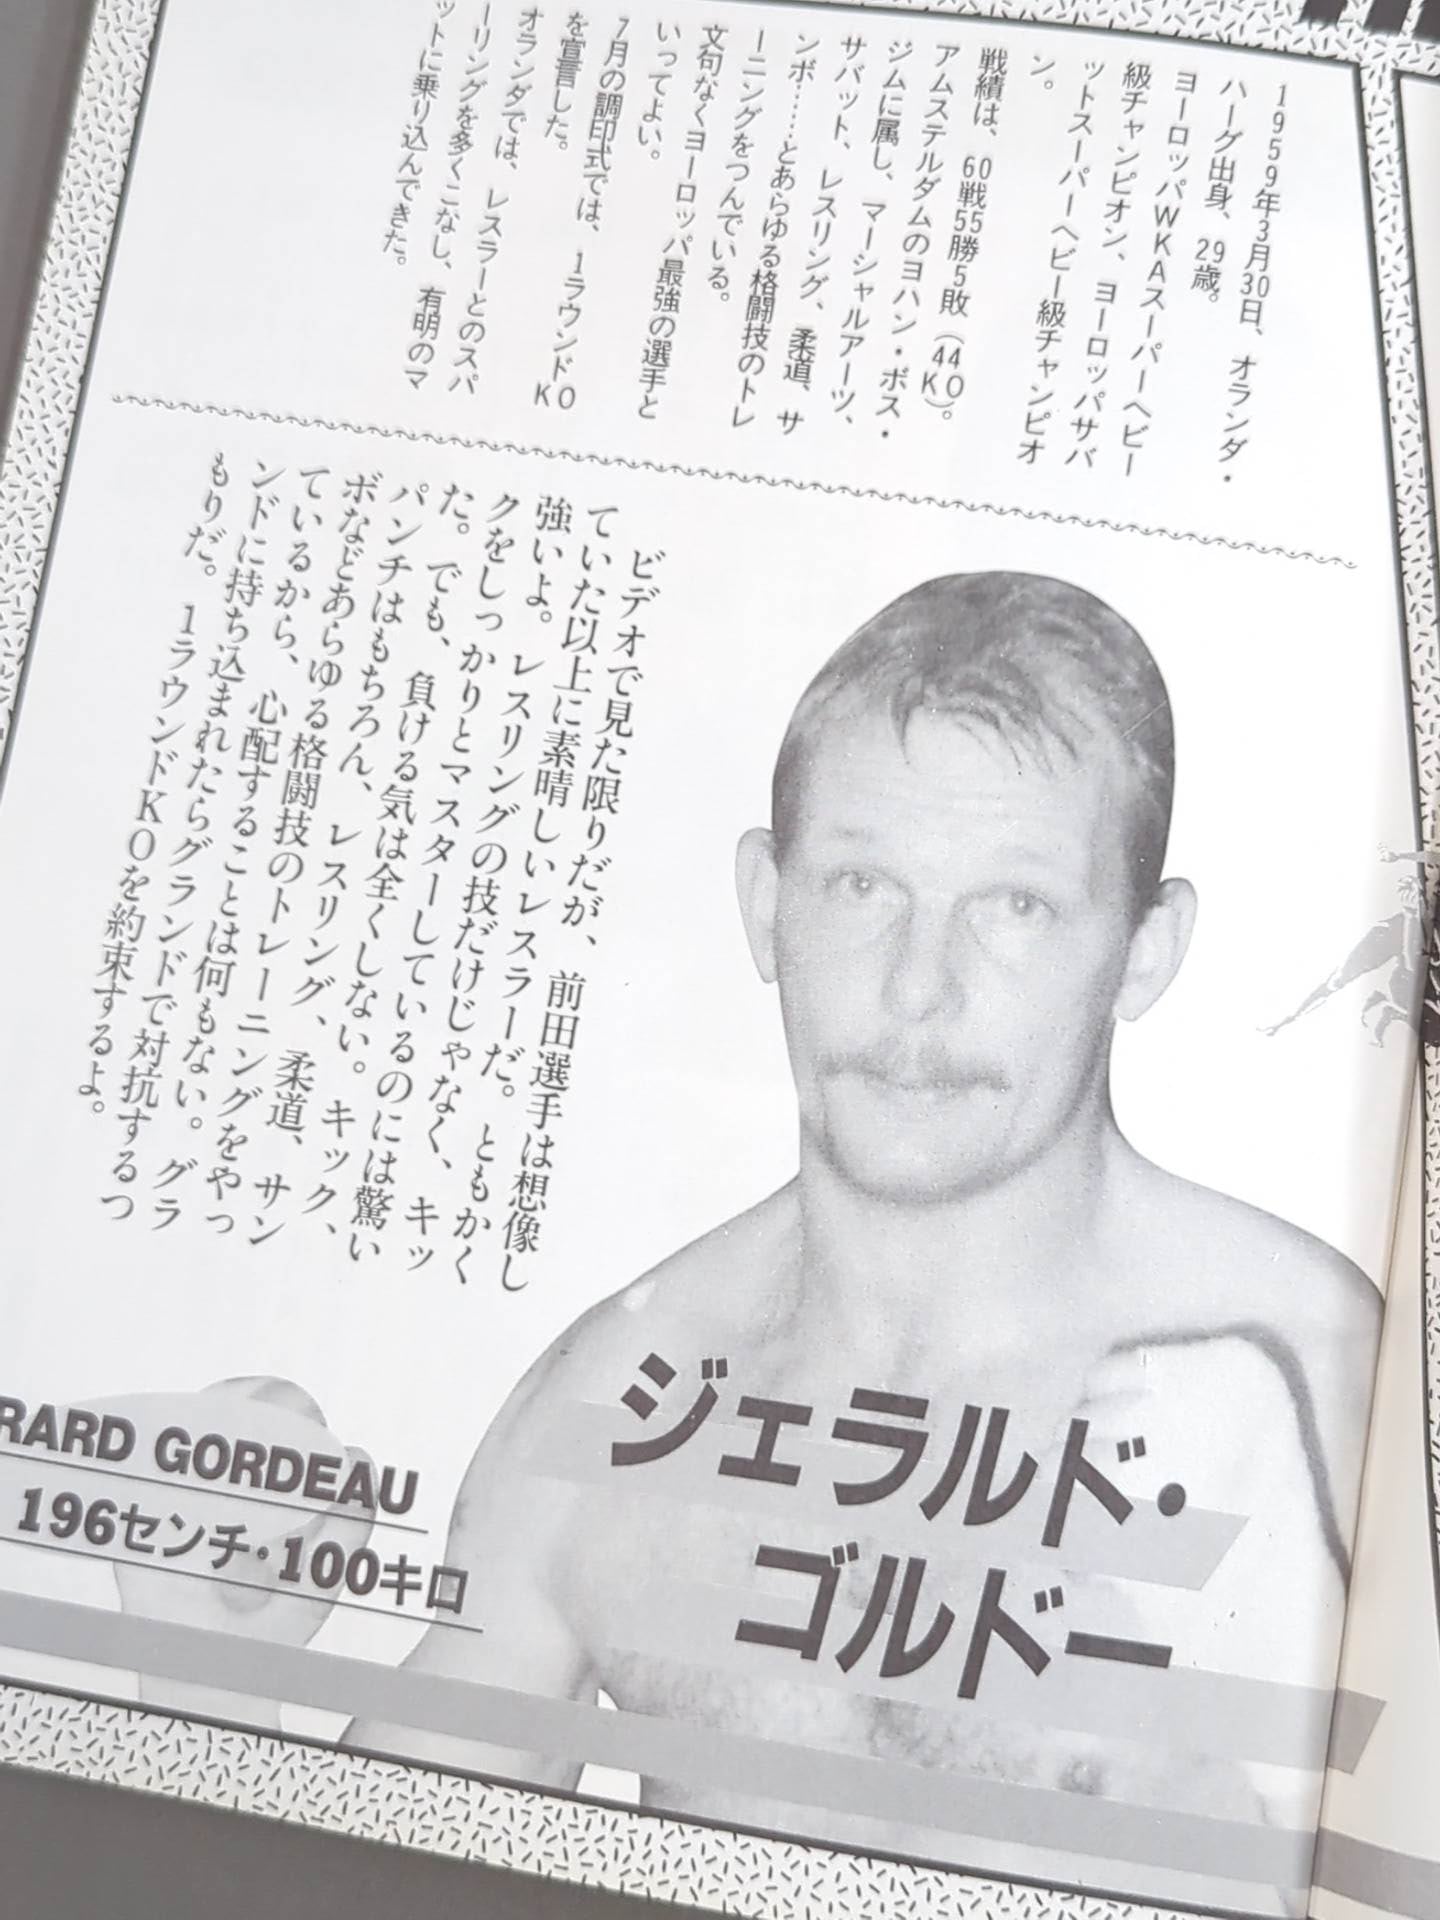 1959年3月30日、オランダ・
ハーグ出身、29歳。
ヨーロッパWKAスーパーヘビー
級チャンピオン、ヨーロッパサバ
ットスーパーヘビー級チャンピオ
ン。
戦績は、60戦55勝5敗（44KO）。
アムステルダムのヨハン・ボス・
ジムに属し、マーシャルアーツ、
サバット、レスリング、柔道、サ
ンボ……とあらゆる格闘技のトレ
ーニングをつんでいる。
文句なくヨーロッパ最強の選手と
いってよい。
7月の調印式では、1ラウンドKO
を宣言した。
オランダでは、レスラーとのスパ
ーリングを多くこなし、有明のマ
ットに乗り込んできた。
ビデオで見た限りだが、前田選手は想像し
ていた以上に素晴しいレスラーだ。ともかく
強いよ。レスリングの技だけじゃなく、キッ
クをしっかりとマスターしているのには驚い
た。でも、負ける気は全くしない。キック、
パンチはもちろん、レスリング、柔道、サン
ボなどあらゆる格闘技のトレーニングをやっ
ているから、心配することは何もない。グラ
ンドに持ち込まれたらグランドで対抗するつ
もりだ。1ラウンドKOを約束するよ。
ジェラルド・
ゴルドー
RARD GORDEAU
196センチ・100キロ